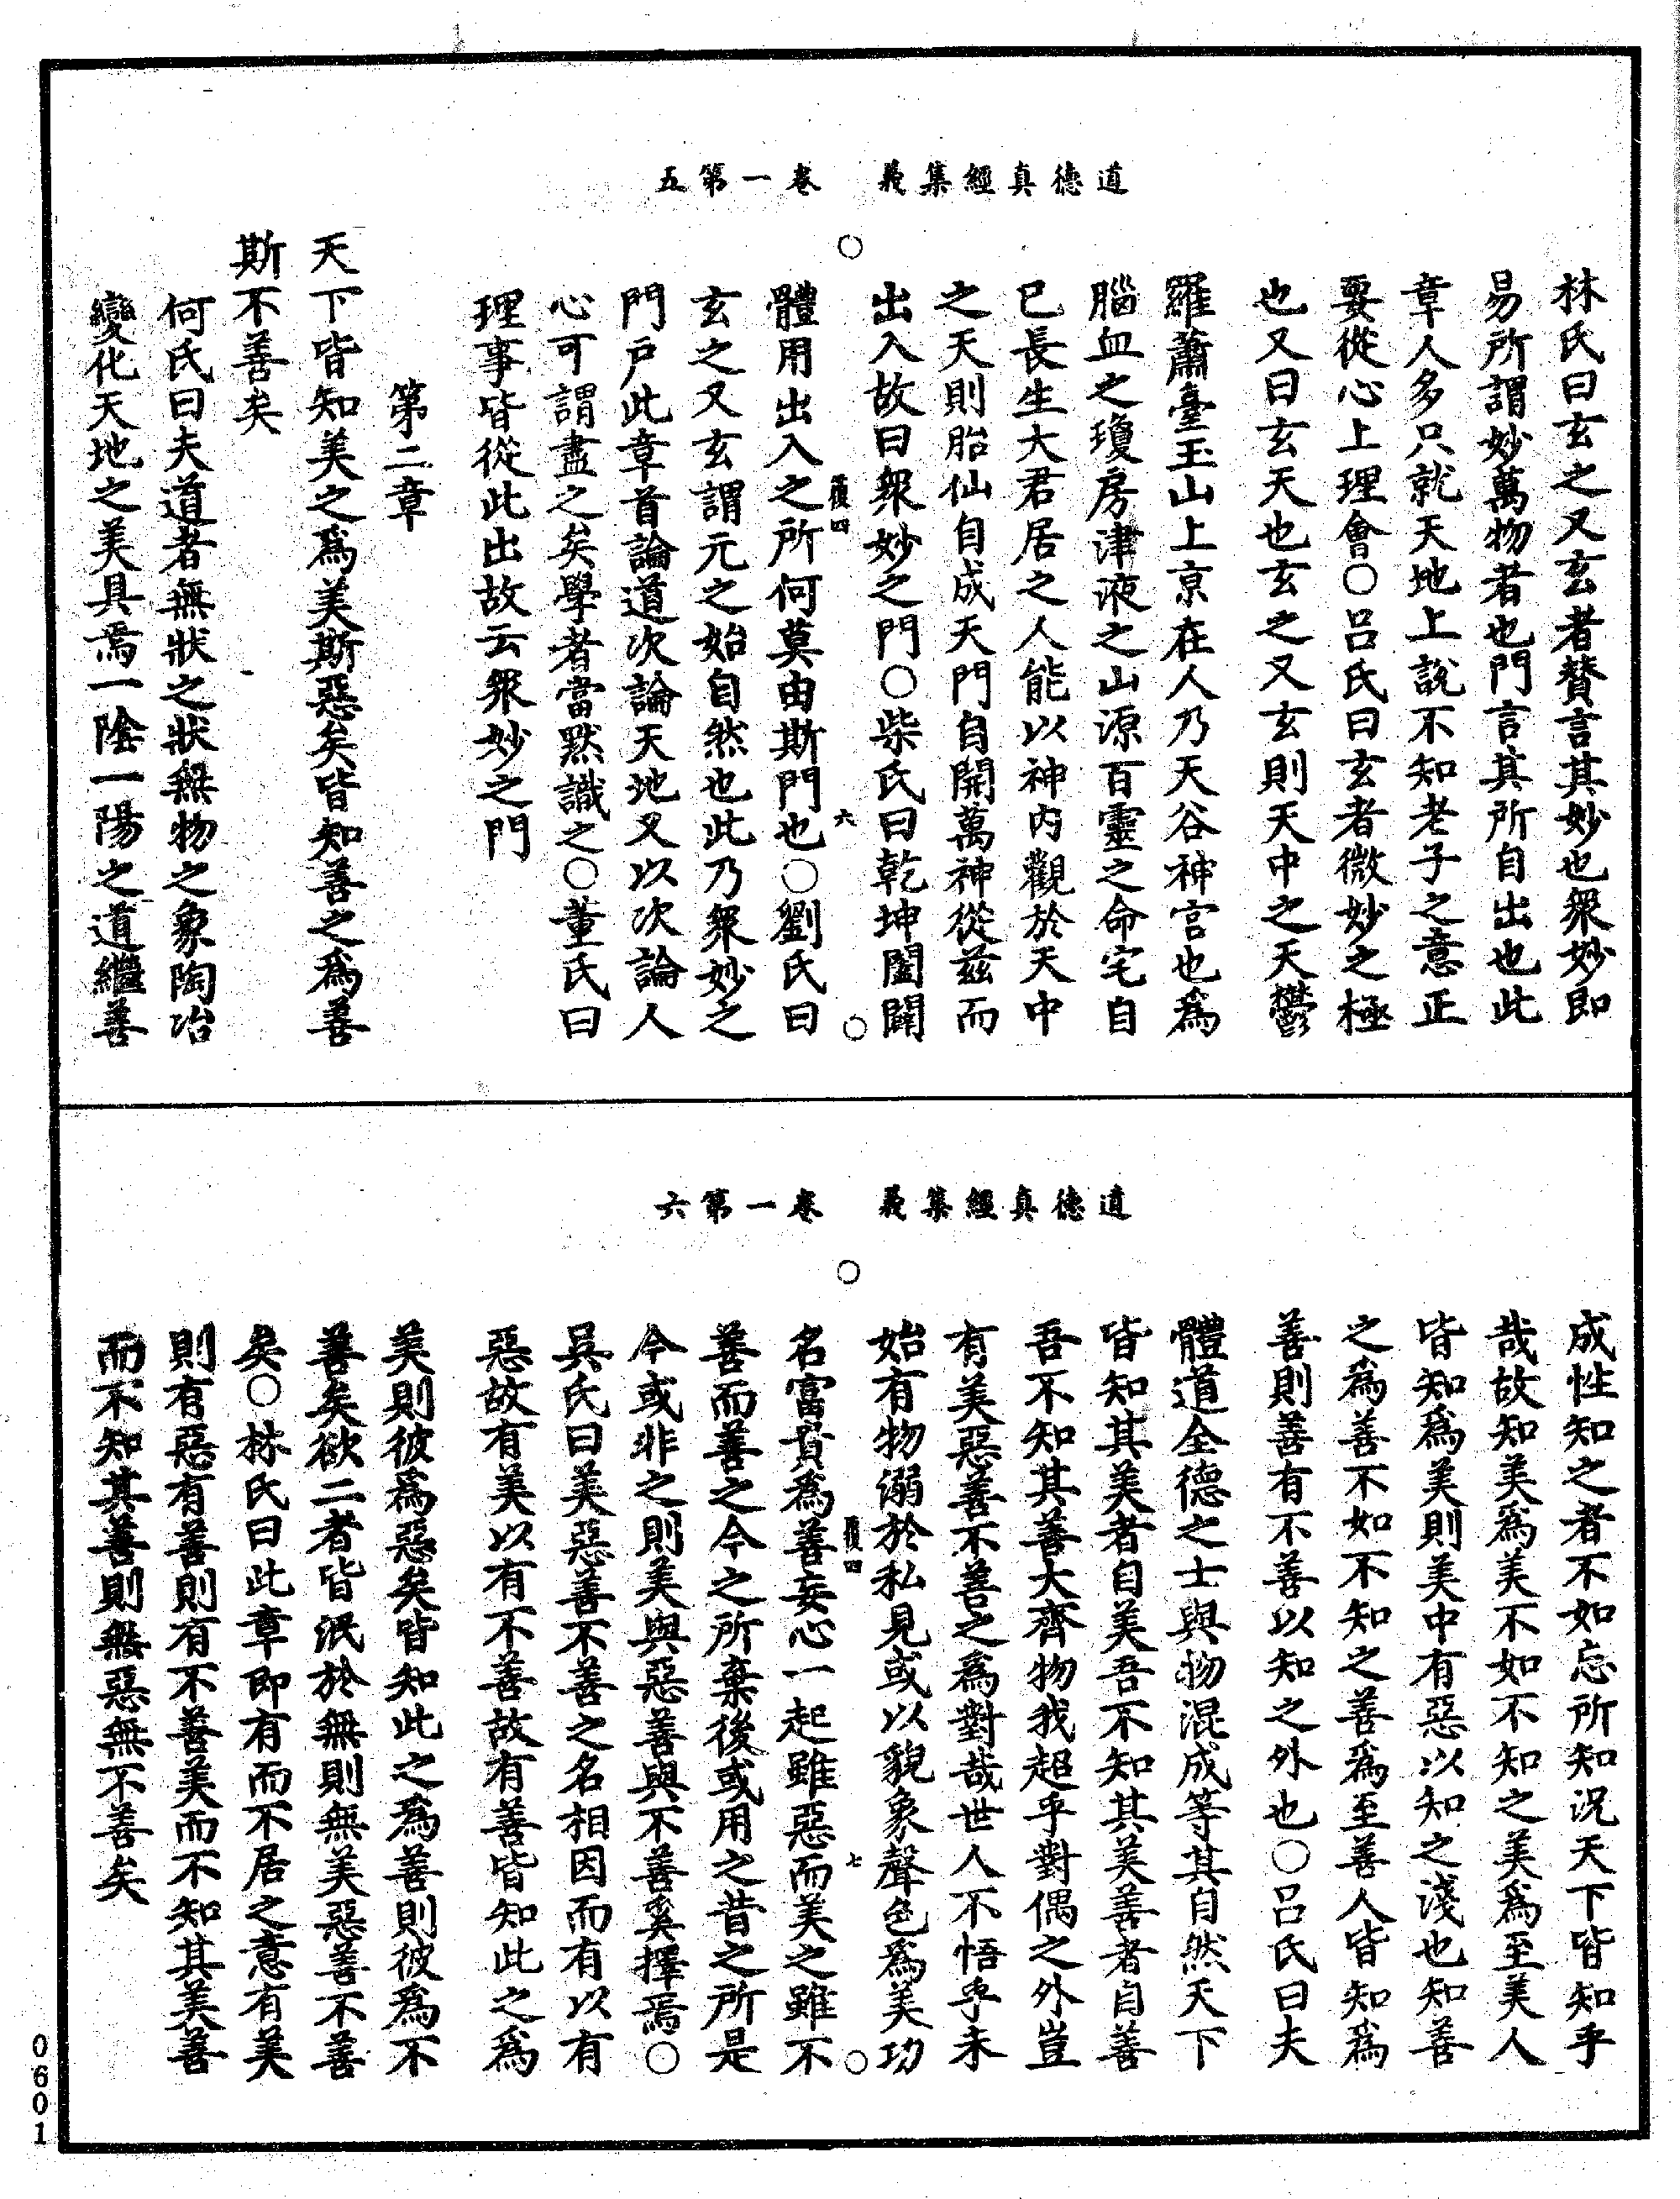 道德真經集義　卷一第五
林氏曰玄之又玄者賛言其妙也衆妙即
易所謂妙萬物者也門言其所自出也此
章人多只就天地上說不知老子之意正
要從心上理會○呂氏曰玄者微妙之極
也又曰玄天也玄之又玄則天中之天鬱
羅蕭臺玉山上京在人乃天谷神宮也爲
腦血之瓊房津液之山源百靈之命宅自
已長生大君居之人能以神内觀於天中
之天則胎仙自成天門自開萬神從兹而
出入故曰衆妙之門○柴氏曰乾坤闔闢
體用出入之所何莫由斯門也○劉氏曰
玄之又玄謂元之始自然也此乃衆妙之
門戶此章首論道次論天地又以次論人
心可謂盡之矣學者當黙識之○董氏曰
理事皆從此出故云衆妙之門
第二章
天下皆知美之爲美斯惡矣皆知善之爲善
斯不善矣
何氏曰夫道者無狀之狀無物之象陶冶
變化天地之美具焉一陰一陽之道繼善
道德真經集義　卷一第六
成性知之者不如忘所知况天下皆知乎
哉故知美爲美不如不知之美爲至美人
皆知爲美則美中有惡以知之淺也知善
之爲善不如不知之善爲至善人皆知爲
善則善有不善以知之外也○呂氏曰夫
體道全德之士與物混成等其自然天下
皆知其美者自美吾不知其美善者自善
吾不知其善大齊物我超乎對偶之外豈
有美惡善不善之爲對哉世人不悟乎未
始有物溺於私見或以貌象聲色爲美功
名富貴爲善妄心一起雖惡而美之雖不
善而善之今之所棄後或用之昔之所是
今或非之則美與惡善與不善奚擇焉○
吳氏曰美惡善不善之名相因而有以有
惡故有美以有不善故有善皆知此之爲
美則彼爲惡矣皆知此之爲善則彼爲不
善矣欲二者皆泯於無則無美惡善不善
矣○林氏曰此章即有而不居之意有美
則有惡有善則有不善美而不知其美善
而不知其善則無惡無不善矣
0601